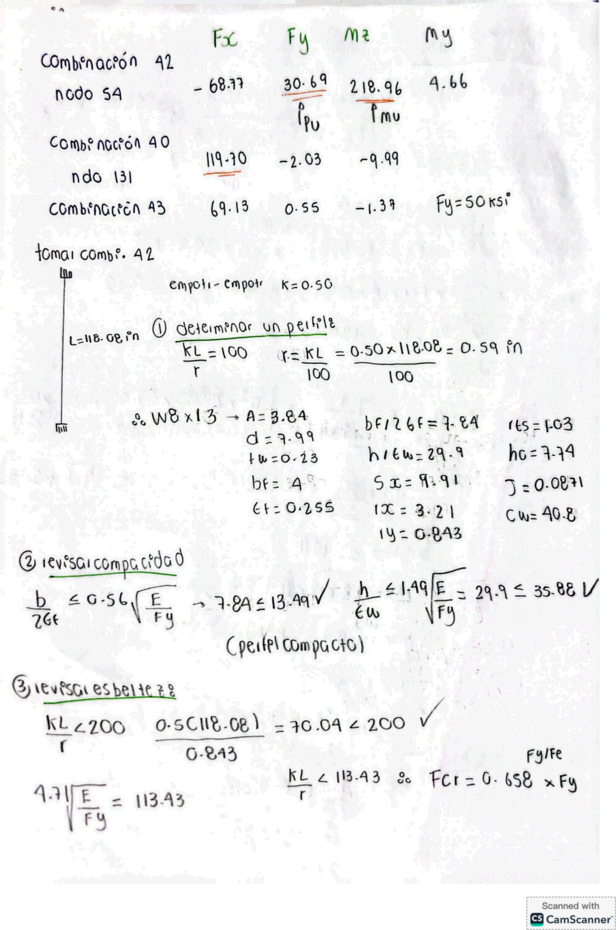 Fx Fy Mz My
Combinación 42
nodo 54 -68.77 30.69 218.96 4.66
Pu Mu
Combinación 40
ndo 131 119.70 -2.03 -9.99
combinación 43 69.13 0.55 -1.37 Fy=50ksi
tomar combi. 42
empotr-empotr K=0.50
L=118.08in ① determinar un perfil:
KL/r = 100 r = KL/100 = 0.50×118.08/100 = 0.59 in
∴ W8×13 → A=3.84 bF/2tF=7.84 rts=1.03
d=7.99 h/tw=29.9 ho=7.74
tw=0.23 Sx=9.91 J=0.0871
bf=4 rx=3.21 Cw=40.8
tf=0.255 ry=0.843
② revisar compacidad
b/2tf ≤ 0.56√E/Fy → 7.84 ≤ 13.49 ✓ h/tw ≤ 1.49√E/Fy = 29.9 ≤ 35.88 ✓
(perfil compacto)
③ revisar esbeltez:
KL/r < 200 0.5(118.08)/0.843 = 70.04 < 200 ✓
4.71√E/Fy = 113.43 KL/r < 113.43 ∴ Fcr = 0.658^Fy/Fe × Fy
Scanned with
CS CamScanner